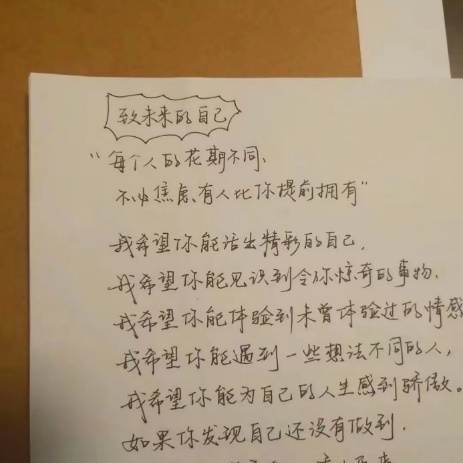 致未来的自己
“每个人的花期不同、
不必焦虑有人比你提前拥有”
我希望你能活出精彩的自己,
我希望你能见识到令你惊奇的事物.
我希望你能体验到未曾体验过的情感
我希望你能遇到一些想法不同的人,
我希望你能为自己的人生感到骄傲。
如果你发现自己还没有做到.